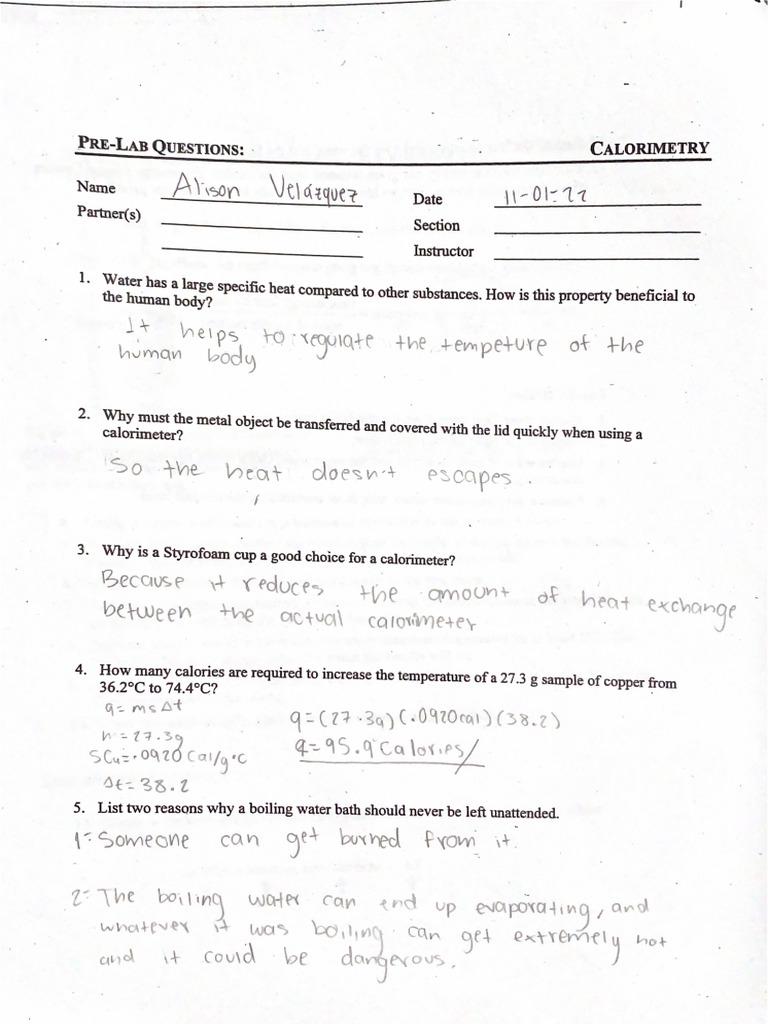 PRE-LAB QUESTIONS:
CALORIMETRY
Name Alison Velázquez
Date 11-01-22
Partner(s)
Section
Instructor
1. Water has a large specific heat compared to other substances. How is this property beneficial to
the human body?
It helps to regulate the tempeture of the
human body
2. Why must the metal object be transferred and covered with the lid quickly when using a
calorimeter?
So the heat doesn't escapes.
3. Why is a Styrofoam cup a good choice for a calorimeter?
Because it reduces the amount of heat exchange
between the actual calorimeter
4. How many calories are required to increase the temperature of a 27.3 g sample of copper from
36.2°C to 74.4°C?
q = ms Δt
n = 27.3g
SCu = .0920 Cal/g·°C
Δt = 38.2
q = (27.3g)(.0920cal)(38.2)
q = 95.9 Calories/
5. List two reasons why a boiling water bath should never be left unattended.
1- Someone can get burned from it.
2- The boiling water can end up evaporating, and
whatever it was boiling can get extremely hot
and it could be dangerous.